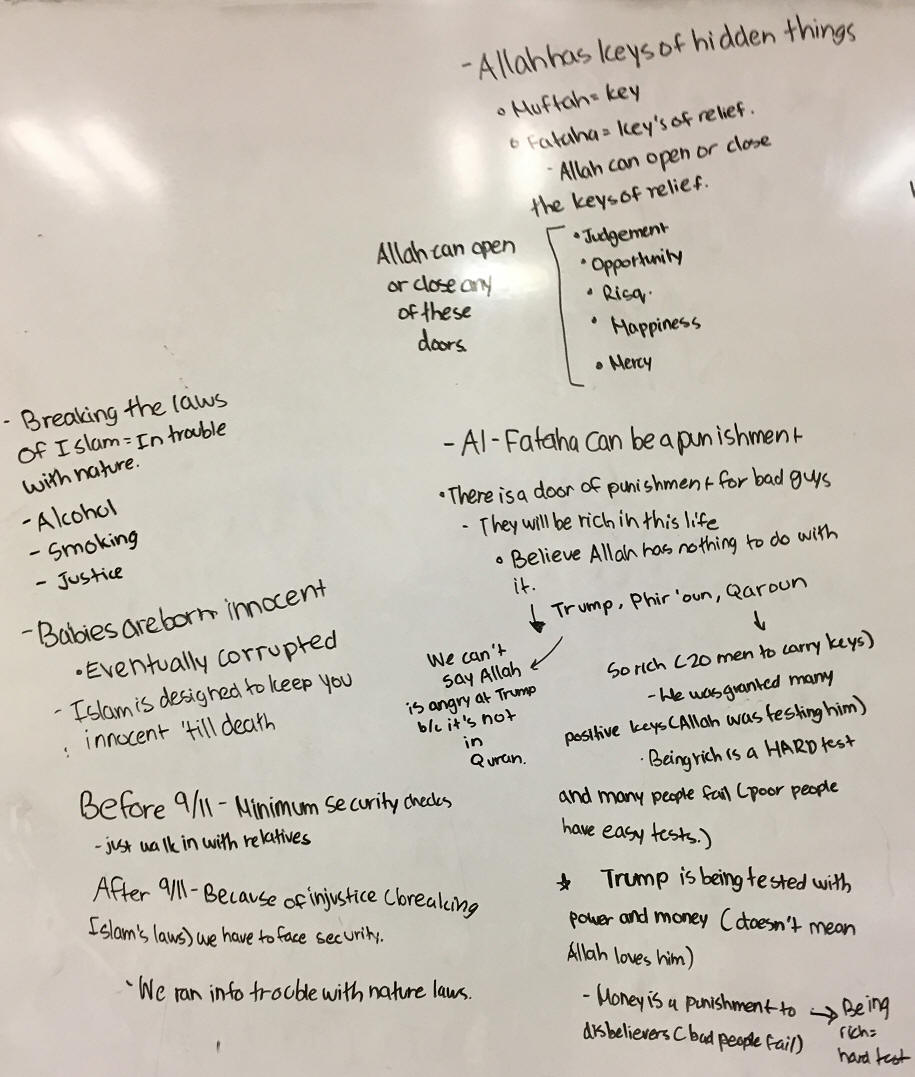 - Allah has keys of hidden things
• Muftah = key
• Fataha = key's of relief.
- Allah can open or close
the keys of relief.
Allah can open
or close any
of these
doors.
• Judgement
• Opportunity
• Risq.
• Happiness
• Mercy
- Breaking the laws
of Islam = In trouble
with nature.
- Alcohol
- Smoking
- Justice
- Babies are born innocent
• Eventually corrupted
- Islam is designed to keep you
innocent 'till death
Before 9/11 - Minimum security checks
- just walk in with relatives
After 9/11 - Because of injustice (breaking
Islam's laws) we have to face security.
• We ran info trouble with nature laws.
- Al - Fataha can be a punishment
• There is a door of punishment for bad guys
- They will be rich in this life
• Believe Allah has nothing to do with
it.
↓ Trump, Phir'oun, Qaroun
We can't
say Allah
is angry at Trump
b/c it's not
in
Quran.
So rich (20 men to carry keys)
- He was granted many
positive keys (Allah was testing him)
• Being rich is a HARD test
and many people fail (poor people
have easy tests.)
☆ Trump is being tested with
power and money (doesn't mean
Allah loves him)
- Money is a punishment to
disbelievers (bad people fail)
→ Being
rich =
hard test